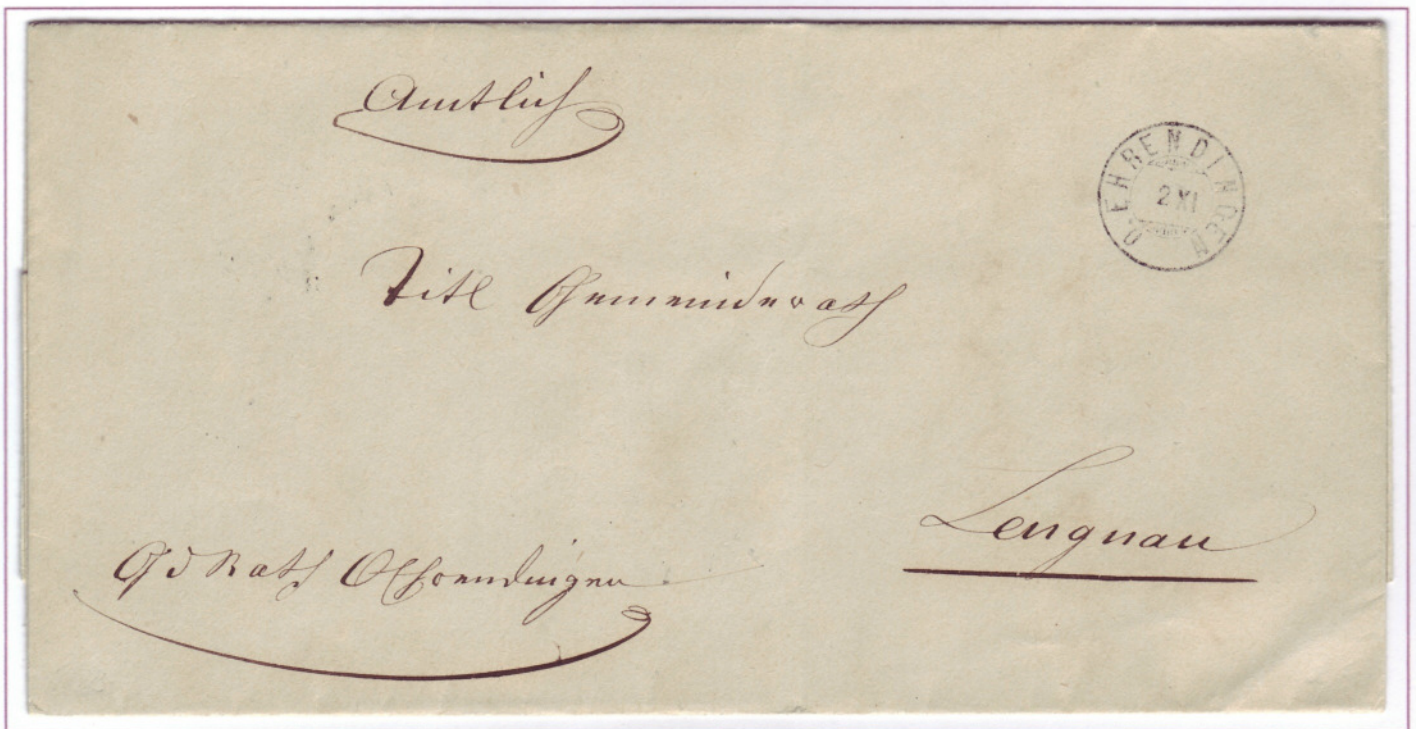 Amtlich
O. EHRENDINGEN
2 XI
Titl Gemeinderath
Lengnau
Gd Rath OEhrendingen